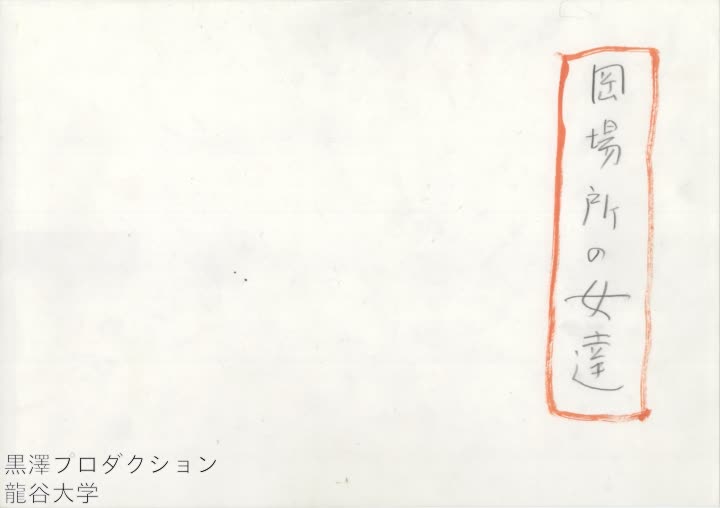 岡場所の女達
黒澤プロダクション
龍谷大学